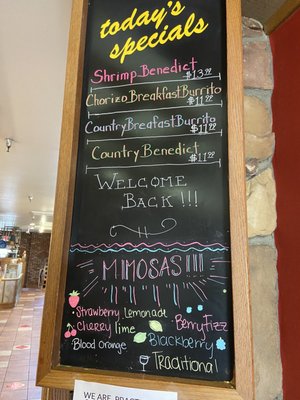 today's
specials
Shrimp Benedict $13.99
Chorizo Breakfast Burrito $11.99
Country Breafast Burrito $11.99
Country Benedict $11.99
WELCOME
BACK!!!
MIMOSAS!!!!
Strawberry Lemonade
Cherry lime Berry Fizz
Blood Orange Blackberry
Traditional
WE ARE